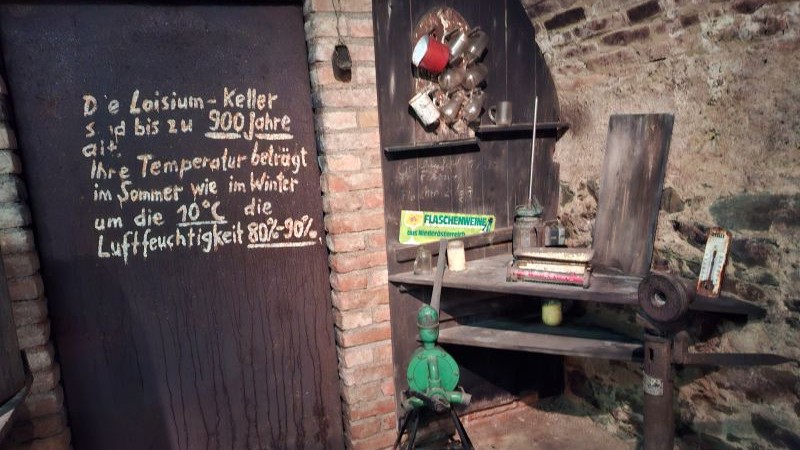 Die Loisium-Keller
sind bis zu 900 Jahre
alt.
Ihre Temperatur beträgt
im Sommer wie im Winter
um die 10°C die
Luftfeuchtigkeit 80%-90%.
FLASCHENWEINE
aus Niederösterreich